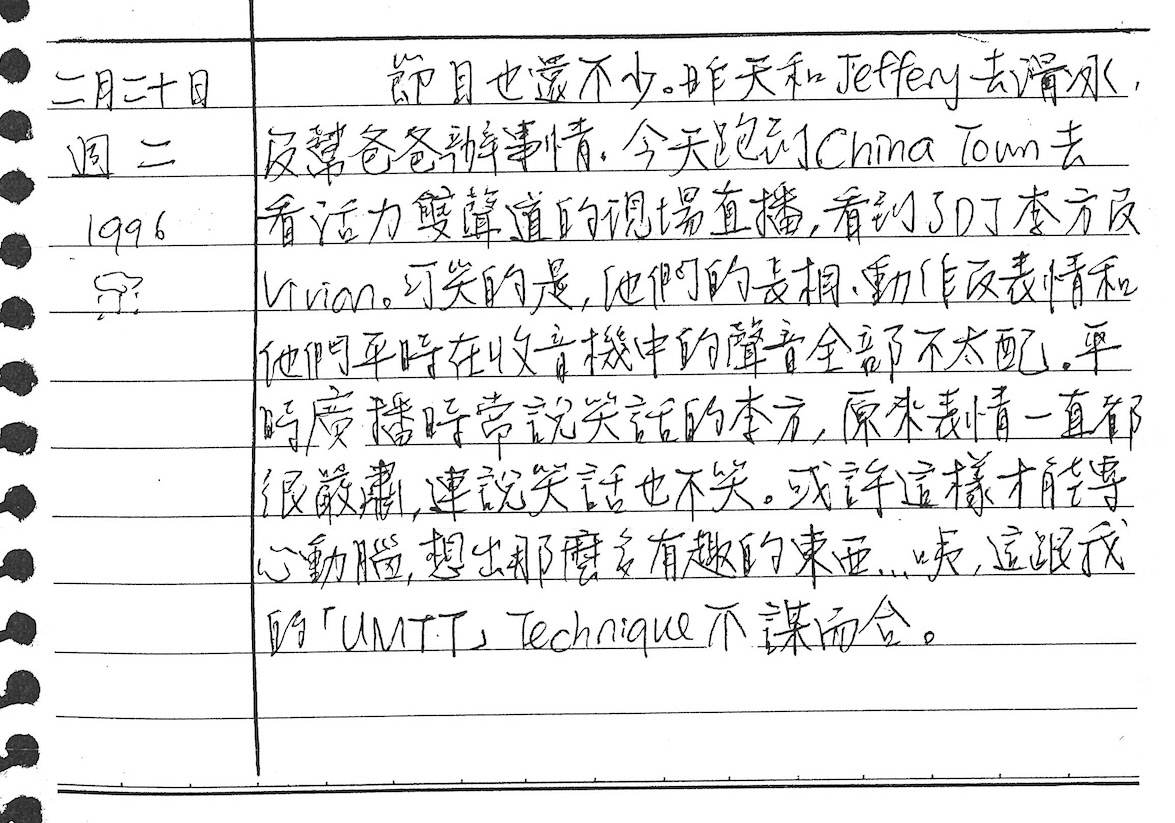 二月二十日
週二
1996
節目也還不少。昨天和Jeffery去滑冰,
及幫爸爸辦事情.今天跑到China Town去
看活力雙聲道的現場直播,看到了DJ李方及
Vivian。可笑的是,他們的長相.動作及表情和
他們平時在收音機中的聲音全部不太配.平
時廣播時常說笑話的李方,原來表情一直都
很嚴肅,連說笑話也不笑。或許這樣才能專
心動腦,想出那麼多有趣的東西...咦,這跟我
的「UMTT」Technique不謀而合。